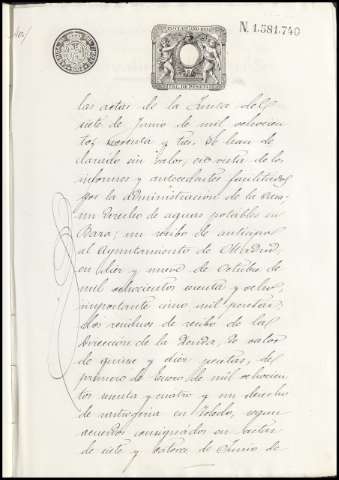 N. 1.581.740
las actas de la Junta de
siete de Junio de mil ochocien
tos noventa y tres, se han de
clarado sin valor, en vista de los
informes y antecedentes facilitados
por la administración de la
un de aguas potables en
Baza; un recibo de anticipo
al Ayuntamiento de Madrid,
en diez y nueve de Octubre de
mil ochocientos y ocho,
importante cinco mil pesetas;
dos residuos de recibo de la
Dirección de la Deuda, de valor
de quince y diez pesetas, de
primero de Enero de mil ochocien
tos y cuatro y un derecho
de en Toledo, segun
acuerdos consignados en actas
de siete y catorce de Junio de